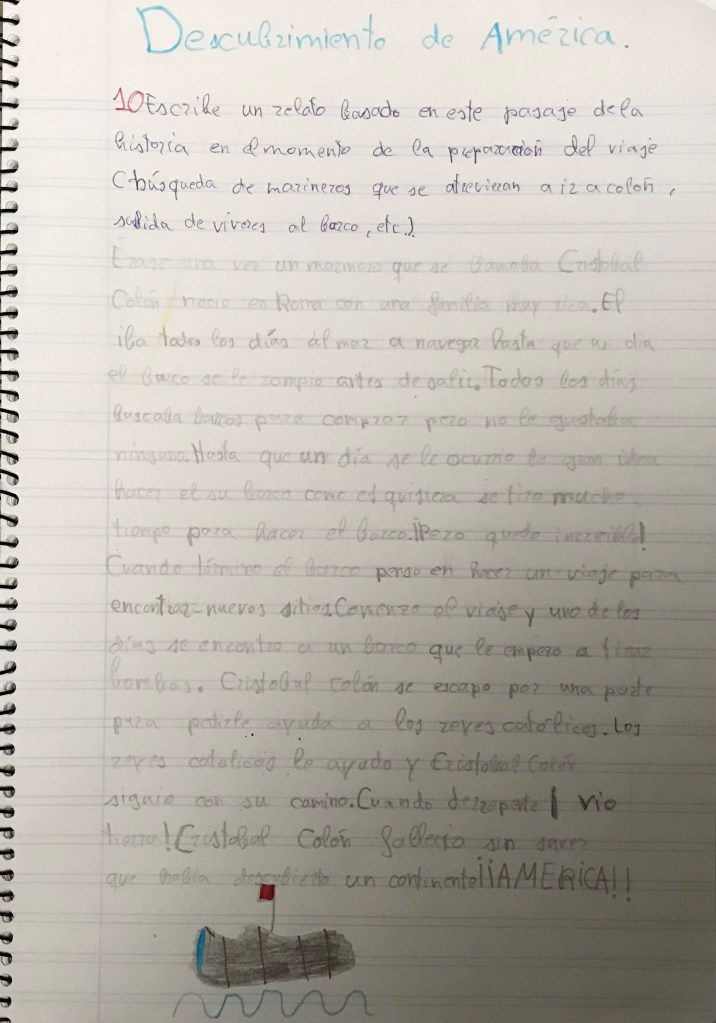 Descubrimiento de América.
10 Escribe un relato basado en este pasaje de la
historia en el momento de la preparación del viaje
(búsqueda de marineros que se atrevieran a ir a colón,
subida de viveres al barco, etc.)
Erase una vez un marinero que se llamaba Cristobal
Colón nacio en Roma con una familia muy rica. El
iba todos los días al mar a navegar hasta que un dia
el barco se le rompio antes de salir. Todos los días
buscaba barcos para comprar pero no le gustaba
ninguno. Hasta que un día se le ocurrio la gran idea
hacer el su barco como el quisiera se tiro mucho
tiempo para hacer el barco. ¡Pero quedo increible!
Cuando término el barco penso en hacer un viaje para
encontrar nuevos sitios Comenzo el viaje y uno de los
días se encontro a un barco que le empezo a tirar
bombas. Cristobal Colón se escapo por una parte
para pedirle ayuda a los reyes catolicos. Los
reyes catolicos le ayudo y Cristobal Colón
siguio con su camino. Cuando derrepente ¡ vio
tierra! Cristobal Colón fallecio sin saver
que habia descubierto un continente ¡¡AMERICA!!